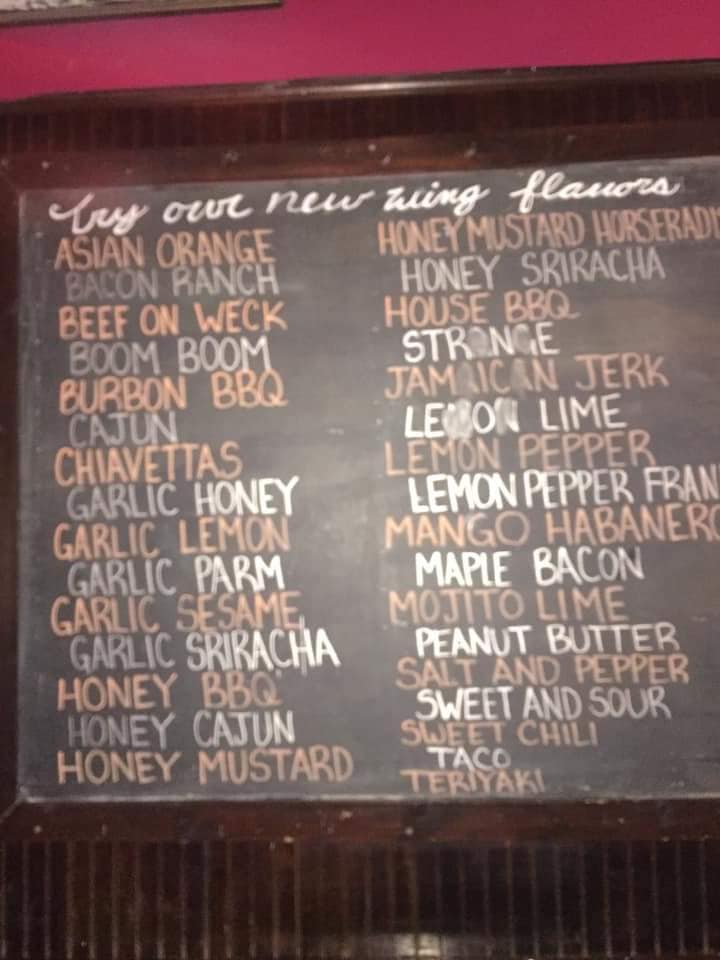 try our new wing flavors
ASIAN ORANGE
BACON RANCH
BEEF ON WECK
BOOM BOOM
BURBON BBQ
CAJUN
CHIAVETTAS
GARLIC HONEY
GARLIC LEMON
GARLIC PARM
GARLIC SESAME
GARLIC SRIRACHA
HONEY BBQ
HONEY CAJUN
HONEY MUSTARD
HONEY MUSTARD HORSERADI
HONEY SRIRACHA
HOUSE BBQ
JAMAICAN JERK
LEMON LIME
LEMON PEPPER
LEMON PEPPER FRAN
MANGO HABANERO
MAPLE BACON
MOJITO LIME
PEANUT BUTTER
SALT AND PEPPER
SWEET AND SOUR
SWEET CHILI
TACO
TERIYAKI